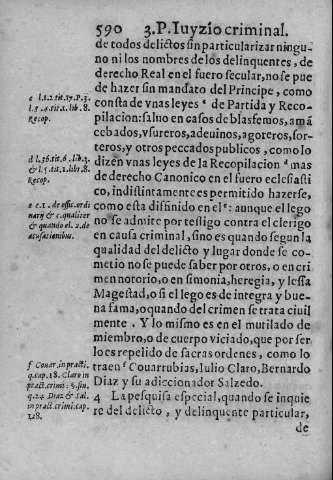 590 3.P. Iuyzio criminal.
de todos delictos sin particularizar ningu-
no ni los nombres de los delinquentes, de
derecho Real en el fuero secular, no se pue
de hazer sin mandato del Principe, como
consta de vnas leyes c de Partida y Reco-
pilacion: saluo en casos de blasfemos, amã
cebados, vsureros, adeuinos, agoreros, sor-
teros, y otros peccados publicos, como lo
dizen vnas leyes de la Recopilacion d mas
de derecho Canonico en el fuero eclesiasti
co, indistintamente es permitido hazerse,
como esta difinido en el e: aunque el lego
no se admite por testigo contra el clerigo
en causa criminal, sino es quando segun la
qualidad del delicto y lugar donde se co-
metio no se puede saber por otros, o en cri
men notorio, o en simonia, heregia, y lessa
Magestad, o si el lego es de integra y bue-
na fama, o quando del crimen se trata ciuil
mente. Y lo mismo es en el mutilado de
miembro, o de cuerpo viciado, que por ser
lo es repelido de sacras ordenes, como lo
traen f Couarrubias, Iulio Claro, Bernardo
Diaz y su adiccionador Salzedo.
4 La pesquisa especial, quando se inquie
re del delicto, y delinquente particular,
de
c l.1.2.tit.17.P.3.
l.3.4.tit.1.lib.8.
Recop.
d l.36.tit.6.lib.3.
& l.5.tit.1.lib.8.
Recop.
e c.1. de offic. ordi
narij & c. qualiter
& quando el.2. de
acusationibus.
f Couar. in practi.
q.cap.18. Claro in
pract. crimi: §. fin.
q.24 Diaz & Sal.
in pract. crimi. cap.
128.